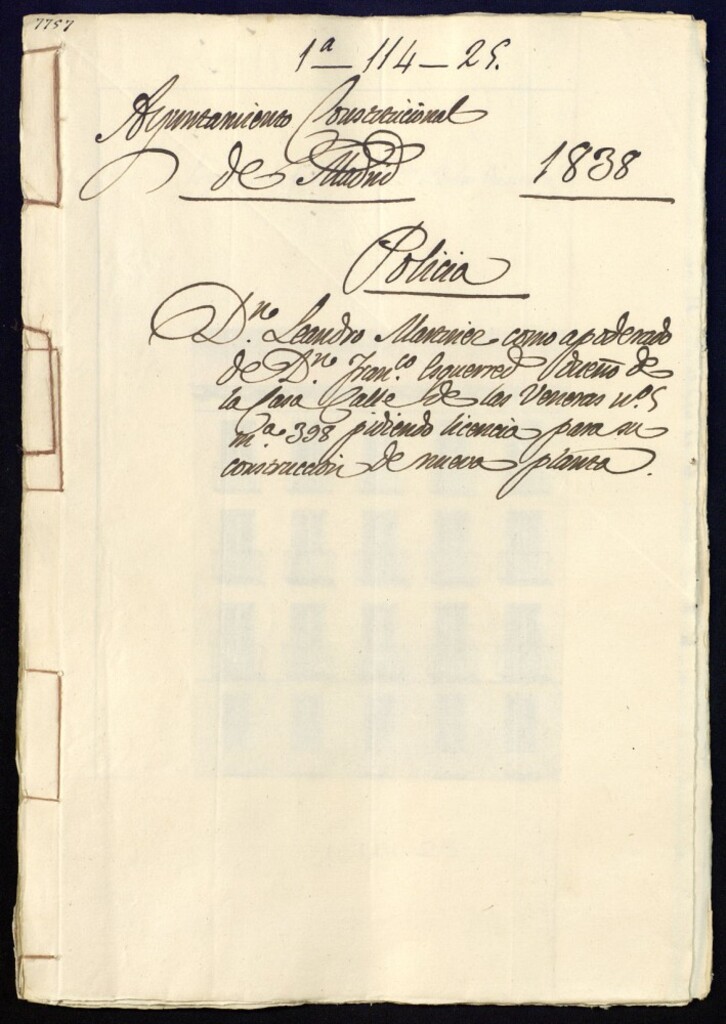 7757
1ª—114—25.
Ayuntamiento Constitucional
de Madrid 1838
Policia
Dn. Leandro Martinez como apoderado
de Dn. Franco. Esquerred dueño de
la Casa Calle de las Veneras nº. 5
m.a 398 pidiendo licencia para su
construccion de nueva planta.